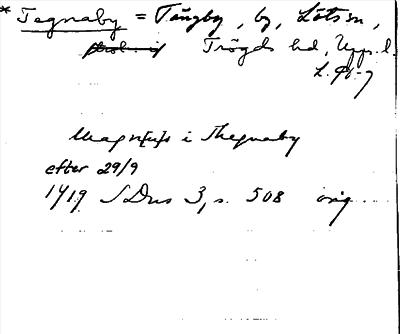 * Tegnaby = Tängby, by, Löts sn,
Trögds hd, Upps. l.
Magn[us] i Thegnaby
efter 29/9
1419 SDns 3, s. 508 orig.